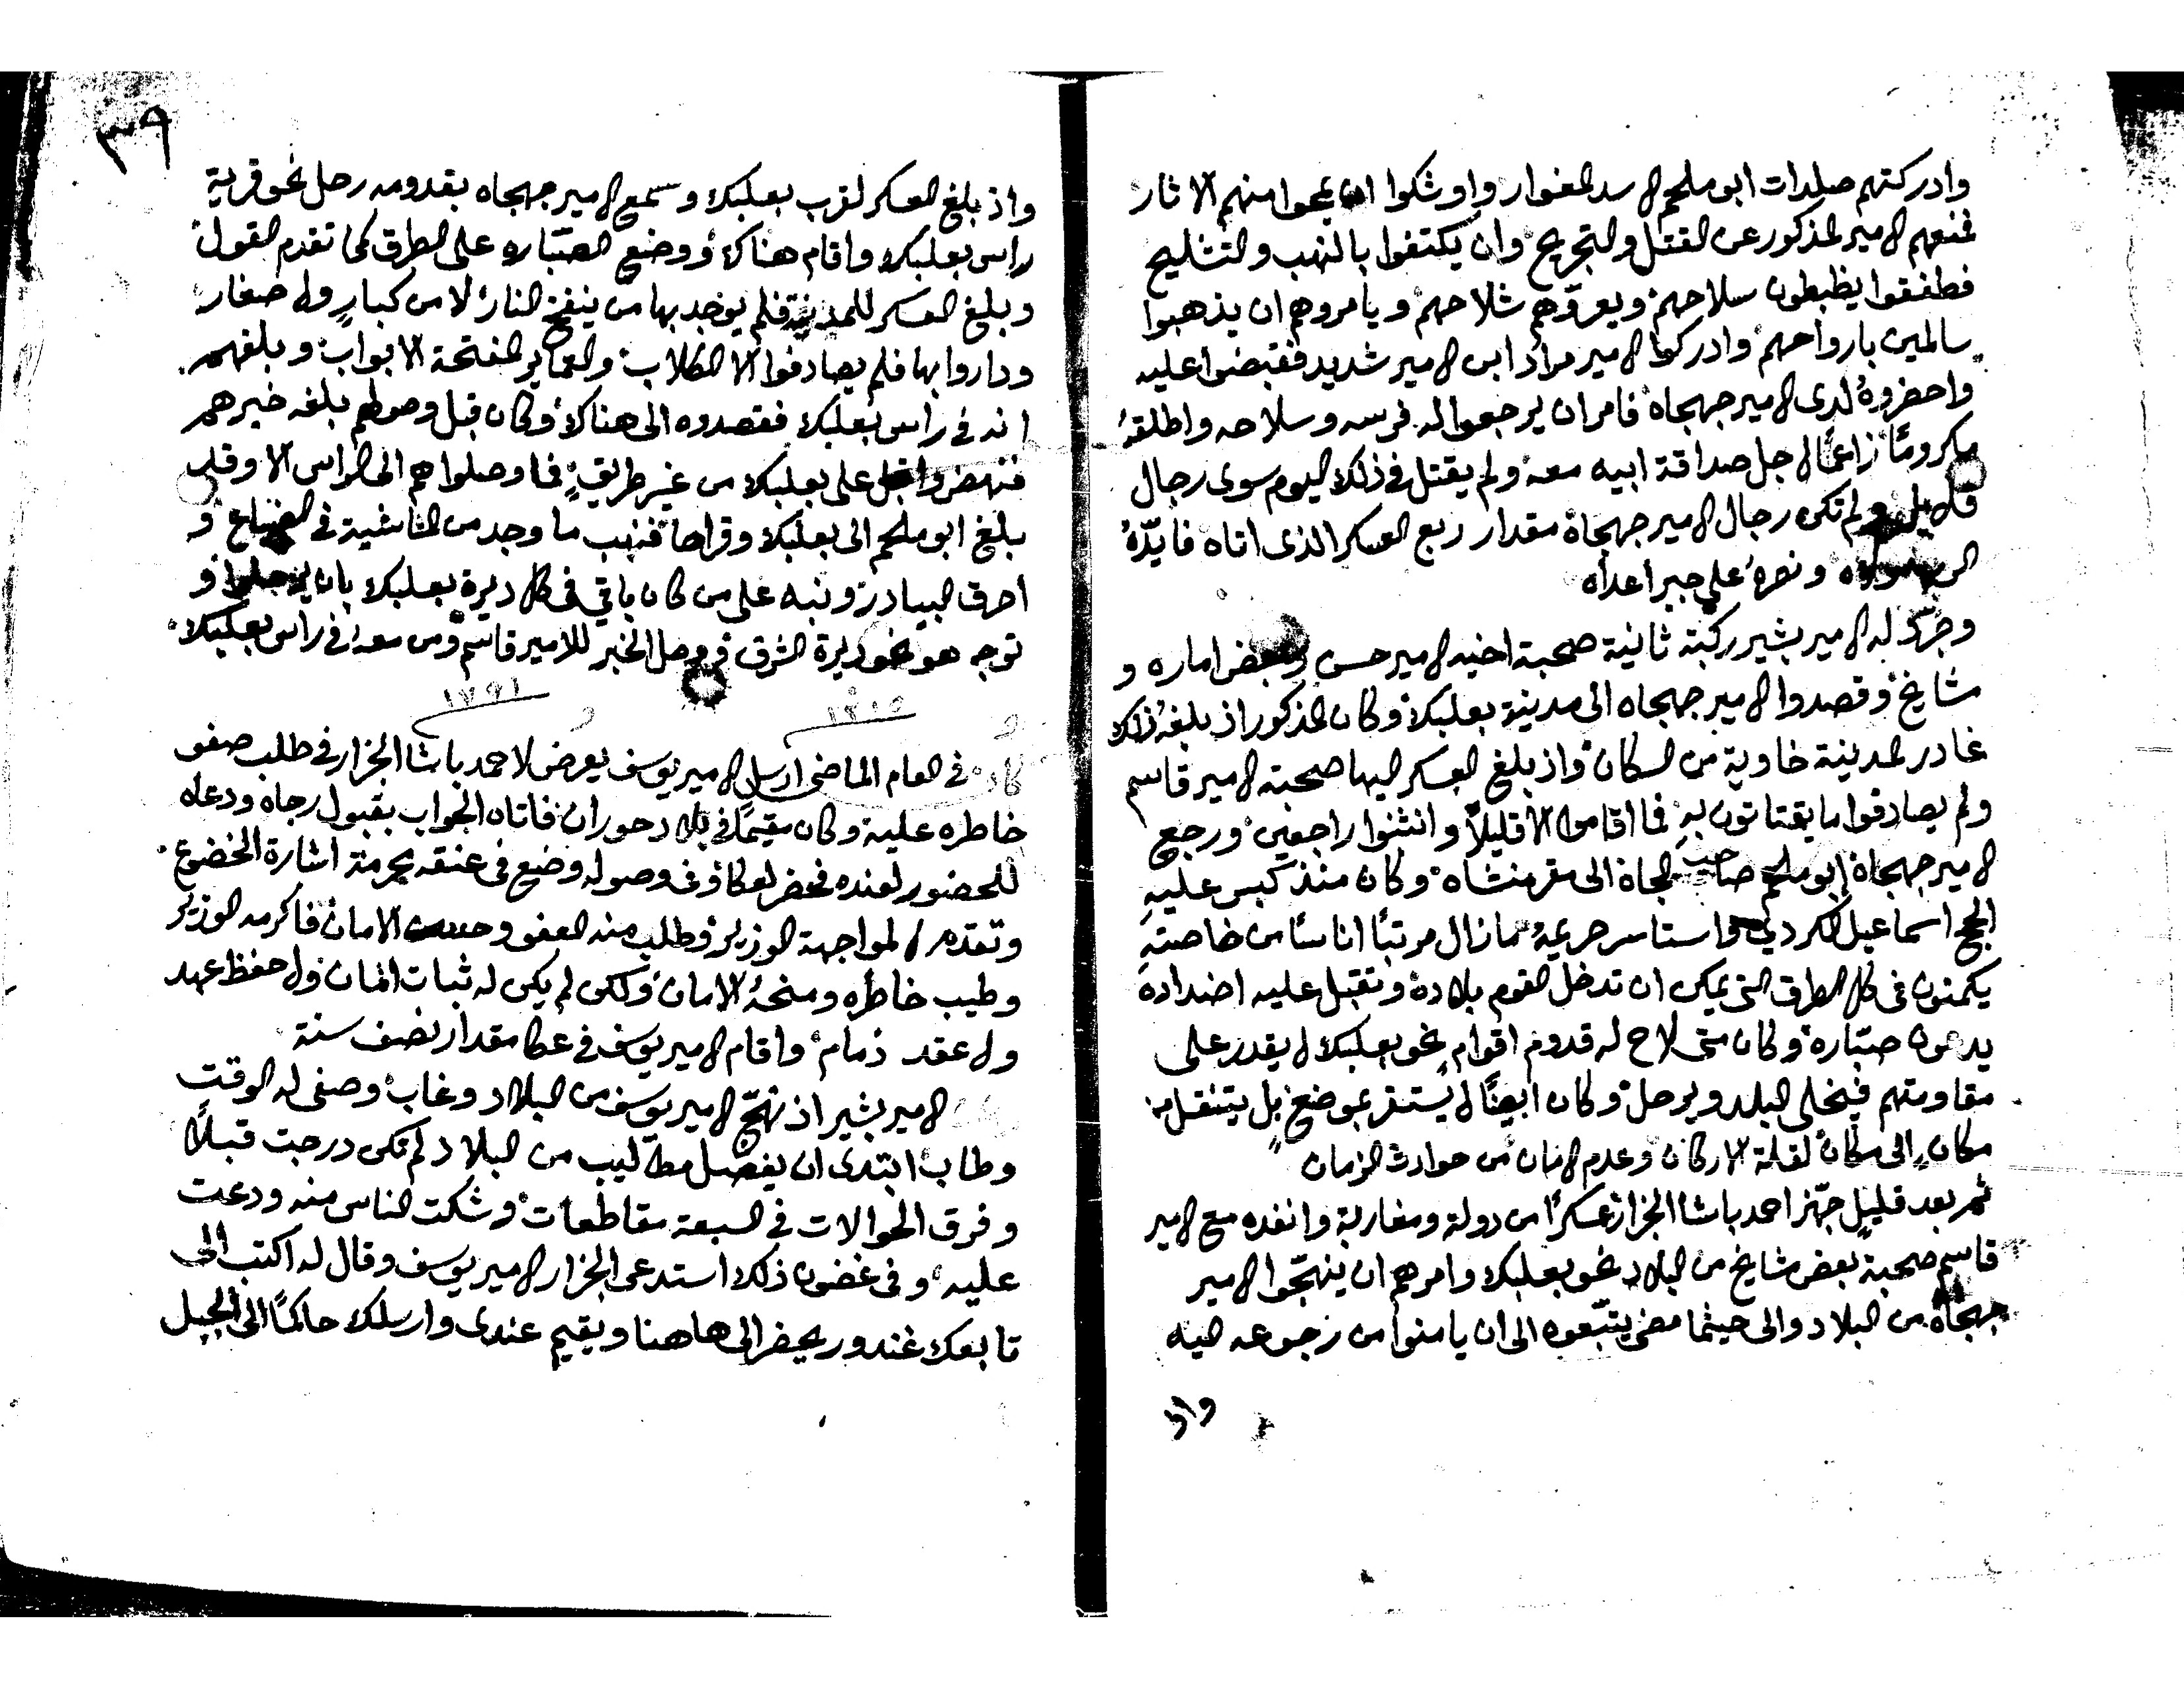 وادركتهم صلدات ابو ملحم الاسد المغوار واوشكوا ان يمحوا منهم الاثار
فمنعهم الامير المذكور عن القتل والتجريح وان يكتفوا بالنهب والتشليح
فطفقوا يظبطون سلاحهم ويعروّهم شلاحهم ويامروهم ان يذهبوا
سالمين بارواحهم وادركوا الامير مراد ابن الامير شديد فقبضوا عليه
واحضروهُ لدى الامير جهجاه فامر ان يرجعوا له فرسه وسلاحه واطلقهُ
مكرومًا زاعمًا لاجل صداقة ابيه معه ولم يقتل في ذلك اليوم سوى رجال
قلايل ولم تكن رجال الامير جهجاه مقدار ربع العسكر الذى اتاه فايّدهُ
ونصرهُ على جبر اعداه
وجرّد له الامير بشير ركبة ثانية صحبة اخيه الامير حسن وبعض اماره و
مشايخ وقصدوا الامير جهجاه الى مدينة بعلبك وكان المذكور اذ بلغهُ ذلك
غادر المدينة خاوية من السكان واذ بلغ العسكر اليها صحبة الامير قاسم
ولم يصادفوا ما يقتاتون بهِ فما اقاموا الا قليلاً وانثنوا راجعين ورجع
الامير جهجاه ابو ملحم صاحب الجاة الى مقر منشاه وكان منذ كبس عليهِ
الحج اسماعيل الكردي واستاسر حريمهُ مازال مرتبًا اناسًا من خاصتهِ
يكمنون في كل الطرق التى يمكن ان تدخل القوم بلاده وتقبل عليه اضداده
يدعون صبّاره وكان متى لاح له قدوم اقوام نحو بعلبك لا يقدر على
مقاومتهم فيخلى البلد ويرحل وكان ايضًا لا يستقر بموضع بل يتنقل من
مكانٍ الى مكان لقلة الاركان وعدم الامان من حوادث الزمان
ثم بعد قليلٍ جهّز احمد باشا الجزار عسكرًا من دولة ومغاربة وانفده مع الامير
قاسم صحبة بعض مشايخ من البلاد نحو بعلبك وامرهم ان ينهجّوا الامير
جهجاه من البلاد والى حيثما مضى يتبّعوه الى ان يامنوا من رجوعه اليه
واذ
٣٩
واذ بلغ العسكر لقرب بعلبك وسمع الامير جهجاه بقدومه رحل نحو قرية
راس بعلبك واقام هناك ووضع الصبّاره على الطرق كما تقدم القول
وبلغ العسكر للمدينة فلم يوجد بها من ينفخ النار لا من كبارٍ ولا صغار
وداروا بها فلم يصادفوا الا الكلاب والعماير المفتحة الابواب وبلغهم
انه في راس بعلبك فقصدوه الى هناك وكان قبل وصولهم بلغه خبرهم
فنهض واقبل على بعلبك من غير طريقٍ فما وصلوا هم الى الراس الا وقد
بلغ ابو ملحم الى بعلبك وقراها فنهب ما وجد من الماشية في الضياع و
احرق البيادر ونبه على من كان باقي في كل ديرة بعلبك بان يرحلوا و
توجه هو نحو ديرة الشرق فوصل الخبر للامير قاسم ومن معه في راس بعلبك
١٢٠٥ ١٧٩١
كان في العام الماضى ارسل الامير يوسف يعرض لاحمد باشا الجزار في طلب صفو
خاطره عليه وكان مقيمًا في بلاد حوران فاتاه الجواب بقبول رجاه ودعاه
للحضور لعنده فحضر لعكا وفى وصوله وضع فى عنقه محرمة اشارة الخضوع
وتقدم لمواجهة الوزير وطلب منه العفو الامان فاكرمه الوزير
وطيب خاطره ومنحهُ الامان ولكن لم يكن له ثبات امان ولا حفظ عهد
ولا عقد ذمام واقام الامير يوسف في عكا مقدار نصف سنة
الامير بشير اذ نهّج الامير يوسف من البلاد وغاب وصفى له الوقت
وطاب ابتدى ان يفصل مطاليب من البلاد لم تكن درجت قبلاً
وفرق الحوالات في السبعة مقاطعات وشكت الناس منه ودعت
عليه وفى غضون ذلك استدعى الجزار الامير يوسف وقال له اكتب الى
تابعك غندور يحضر الى هاهنا ويقيم عندى وارسلك حاكمًا الى الجبل